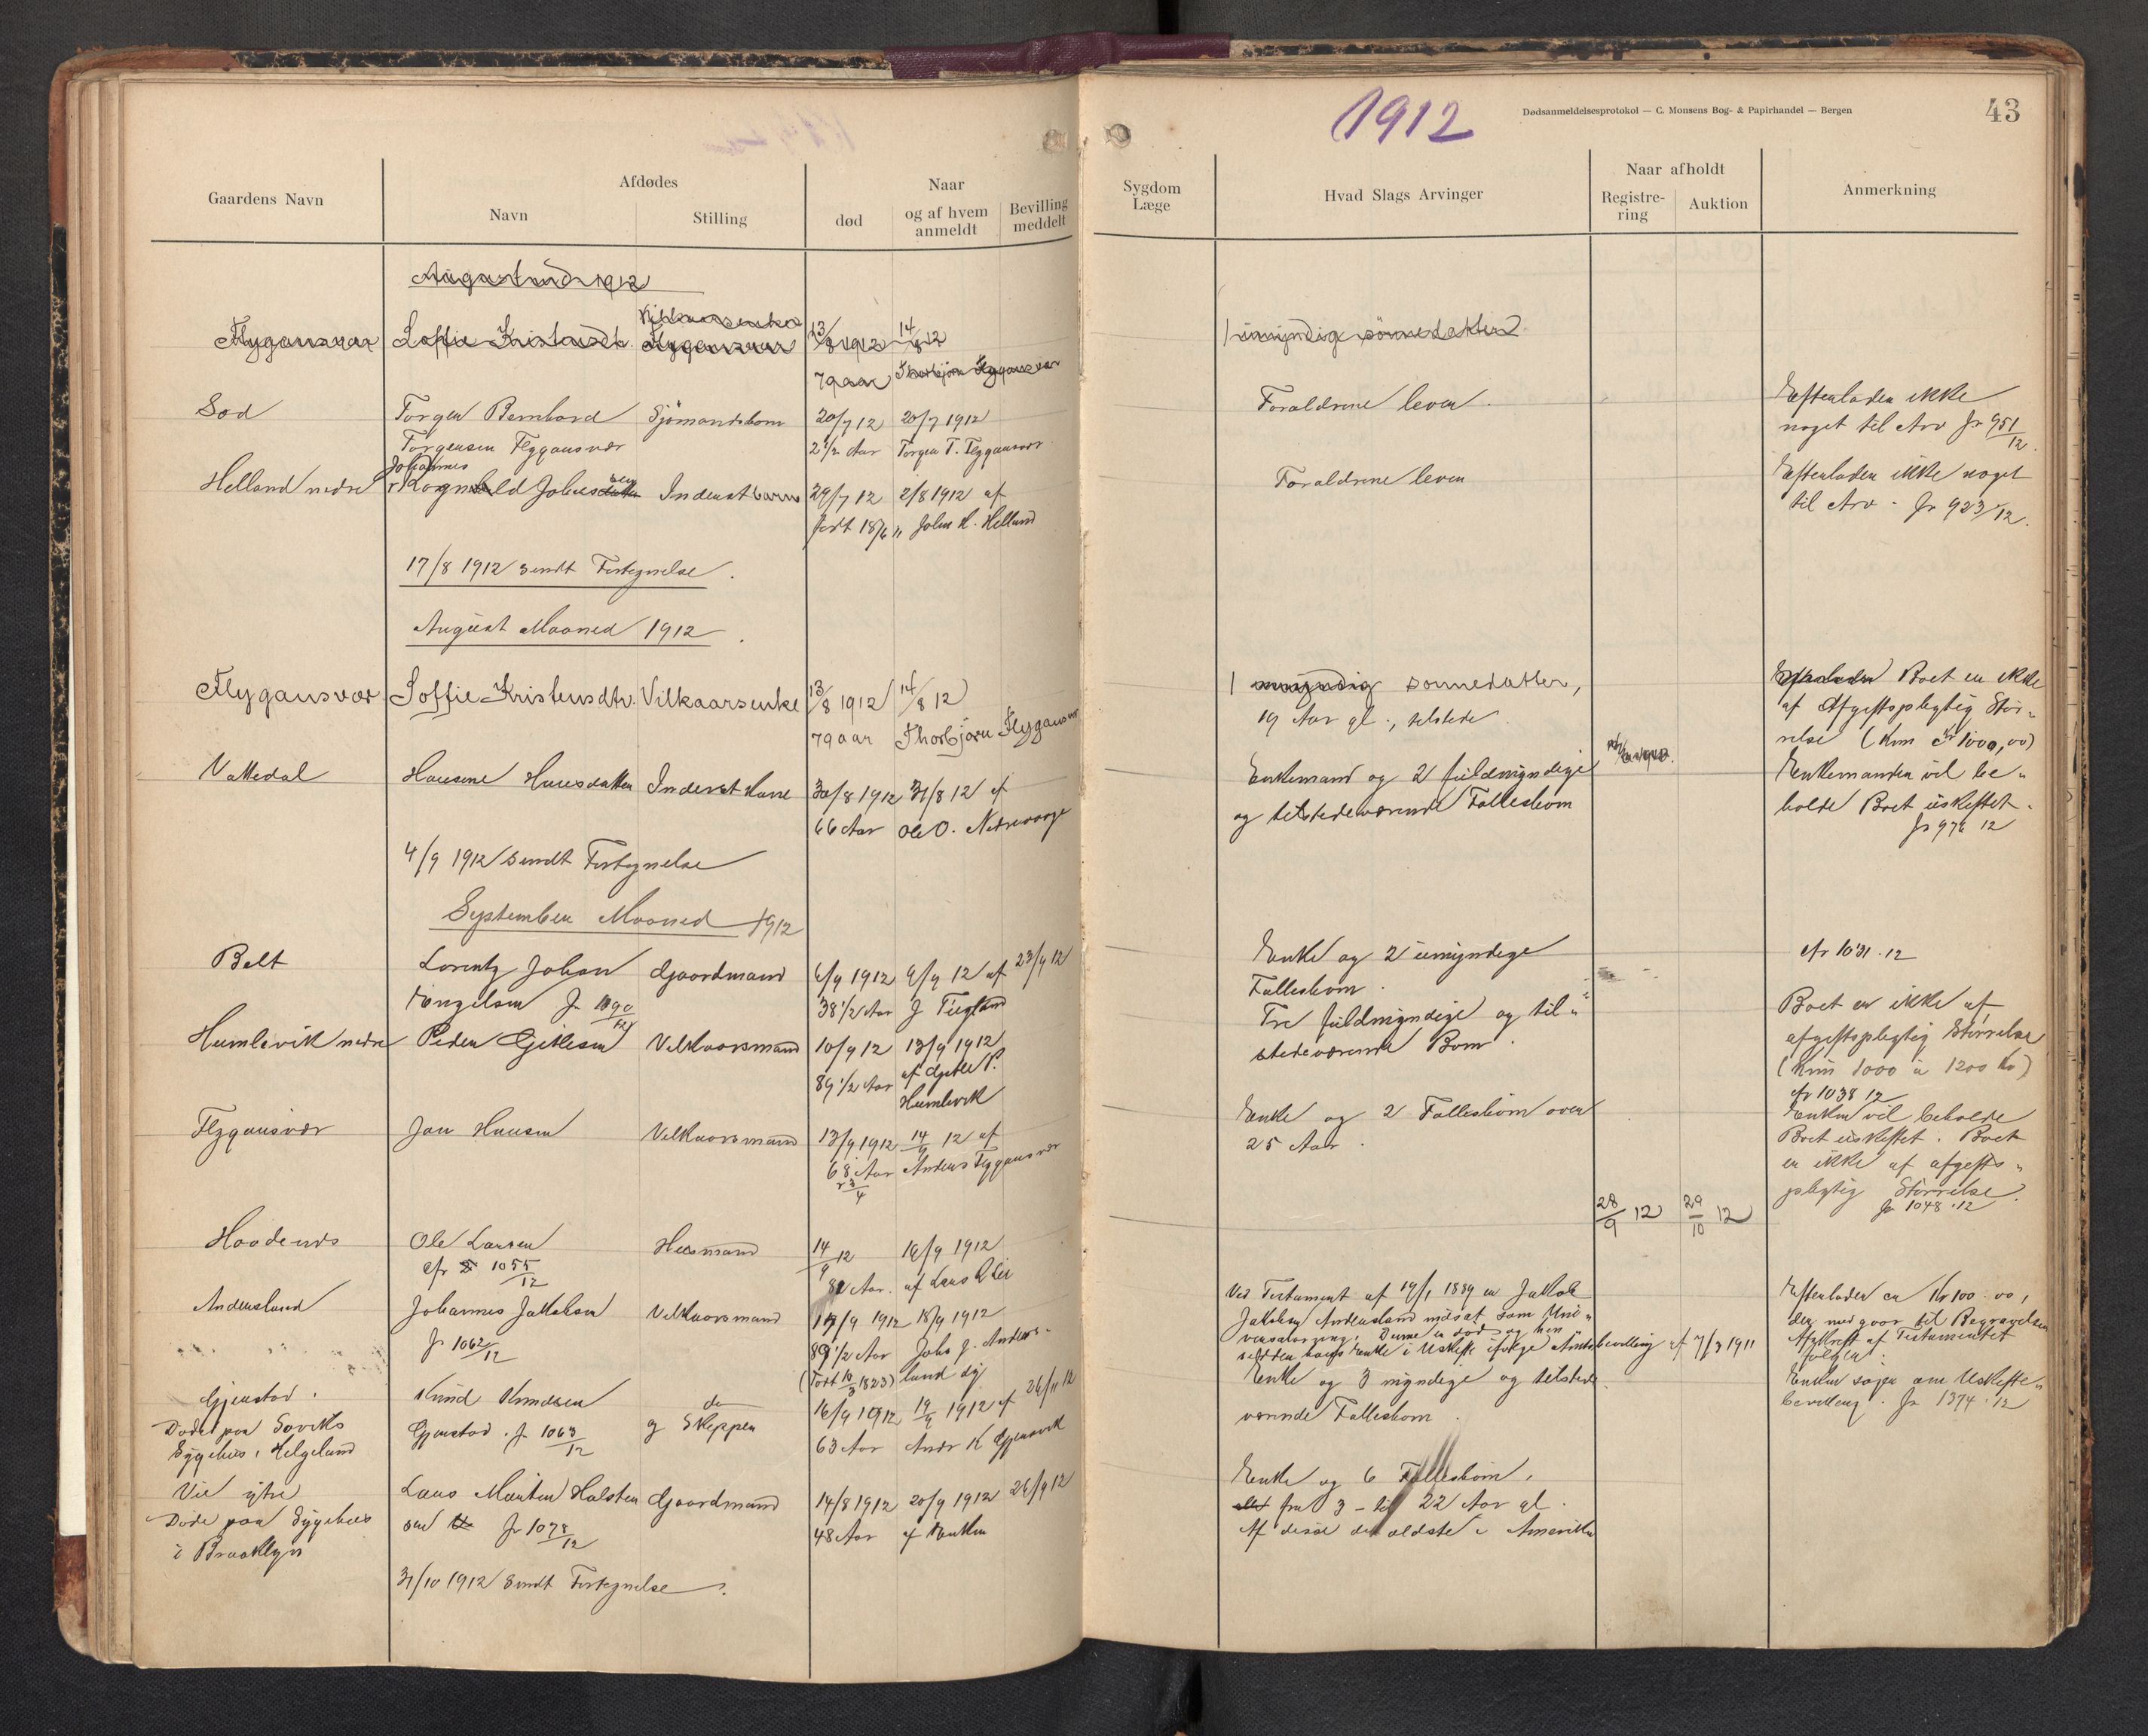 1912
Dødsanmeldelsesprotokol — C. Monsens Bog- & Papirhandel — Bergen
43
Gaardens Navn
Afdødes
Navn
Stilling
Naar
død
og af hvem anmeldt
Bevilling meddelt
Sygdom
Læge
Hvad Slags Arvinger
Naar afholdt
Registre-
ring
Auktion
Anmerkning
Flygansvær Soffie Kristensdt. Vilkaarsenke Flygansvær 13/8 1912 14/8 12 1 umyndig sønnedatter
79 aar Thorbjörn Flygansvær
Torgen Bernhard Sjömandsbarn 20/7 12 20/7 1912 Forældrene lever. Efterlader ikke
Torgensen Flygansvær 2 1/2 Aar Torgen T. Flygansvær noget til Arv Jr 951/12
Johannes
Helland nedre Inderstbarn 29/7 12 2/8 1912 af Forældrene lever Efterlader ikke noget
født 18/6 " Johs H. Helland til Arv - Jr 923/12.
17/8 1912 sendt Fortegnelse.
August Maaned 1912.
Flygansvær Soffie Kristensdtr. Vilkaarsenke 13/8 1912 14/8 12 1 umyndig sønnedatter, Efterlader Boet er ikke
79 aar Thorbjørn Flygansvær 19 Aar gl., tilstede af Afgiftspligtig Stör-
relse (kun Kr 1000,00)
Vattedal Hansine Hansdatter Inderst Kone 30/8 1912 31/8 12 af Enkemand og 2 fuldmyndige Enkemanden vil be-
66 Aar Ole O. og tilstedeværende Fællesbørn holde Boet uskiftet.
Jr 976 12
4/9 1912 sendt Fortegnelse
September Maaned 1912
Belt Lorentz Johan Gaardmand 6/9 1912 9/9 12 af 23/9 12 Enke og 2 umyndige cfr 1031.12
Engelsen Jr 1090/12 38 1/2 Aar J Fuglland Fællesbørn.
Humlevik nedre Peder Gitlesen Vilkaarsmand 10/9 12 13/9 1912 Tre fuldmyndige og til- Boet er ikke af
89 1/2 Aar af Gitle P. stedeværende Børn. afgiftspligtig Størrelse
Humlevik (kun 1000 à 1200 Kr)
cfr 1038 12
Flygansvær Jan Hansen Vilkaarsmand 13/9 1912 14/9 12 af Enke og 2 Fællesbørn over Enken vil beholde
68 Aar Anders Flygansvær 25 Aar. Boet uskiftet. Boet
er ikke af afgifts-
pligtig Størrelse.
Jr 1048.12
28/9 12 29/10 12
Ole Larsen Husmand 14/9 12 16/9 1912
cfr 1055/12 Aar. af Lars
Andersland Johannes Jakobsen Vilkaarsmand 18/9 1912 Ved Testament af 19/1 1889 er Jakob Efterlader ca Kr 100.00,
Jr 1062/12 89 1/2 Aar Johs J. Anders- Jakobsen Andersland indsat som Uni- der medgaar til Begravelsen
(Født 16/3 1823) land versalarving. Denne er død og han Afskrift af Testamentet
sidder hans Enke i Uskifte ifølge Amtsbevilling af 7/3 1911 følger.
Gjerstad. Knud Knudsen 16/9 1912 19/9 1912 af 26/11 12 Enke og 3 myndige og tilstede- Enken søger om Uskifte-
Døde paa Søviks Gjerstad. Jr 1063/12 63 Aar værende Fællesbørn. bevilling. Jr 1374.12
Sygehus, Helgeland
Vie ytre Lars Martin Halsten Gaardmand 14/8 1912 20/9 1912 26/9 12 Enke og 6 Fællesbørn,
Døde paa Sygehus sen Jr 1078/12 48 Aar af Enken fra 3 - til 22 Aar gl.
i Brooklyn Af disse de ældste i Amerika
31/10 1912 Sendt Fortegnelse.